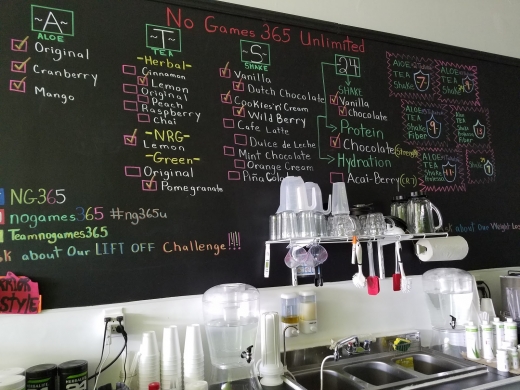 No Games 365 Unlimited
~A~
ALOE
Original
Cranberry
Mango
~T~
TEA
-Herbal-
Cinnamon
Lemon
Original
Peach
Raspberry
Chai
-NRG-
Lemon
-Green-
Original
Pomegranate
~S~
SHAKE
Vanilla
Dutch Chocolate
Cookies'n'Cream
Wild Berry
Cafe Latte
Dulce de Leche
Mint Chocolate
Orange Cream
Piña Colada
24
SHAKE
Vanilla
Chocolate
Protein
Chocolate (Strength)
Hydration
Acai-Berry
ALOE
TEA
Shake
7
ALOE
TEA
Shake
ALOE
TEA
Shake
Fiber
ALOE
TEA
Shake
Fiber
ALOE
TEA
Shake
Shake
NG365
nogames365 #ng365u
Teamnogames365
Ask about Our LIFT OFF Challenge!!!!
about Our Weight